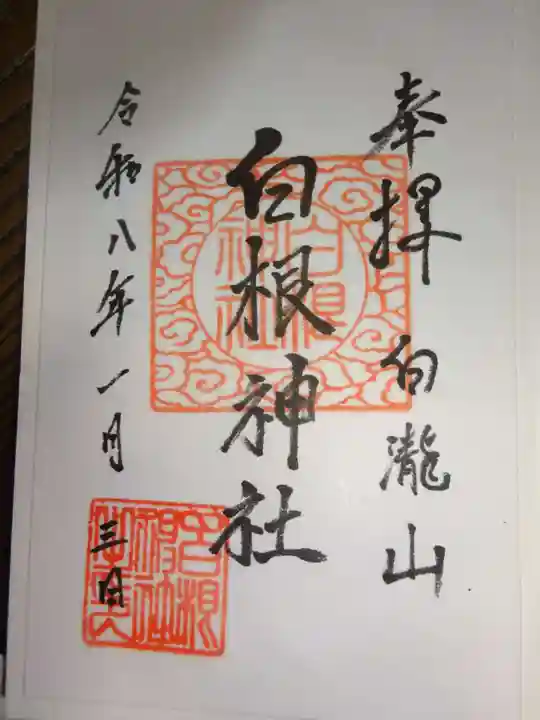 奉拝 白瀧山
白根神社
令和八年一月三日
白根
神社